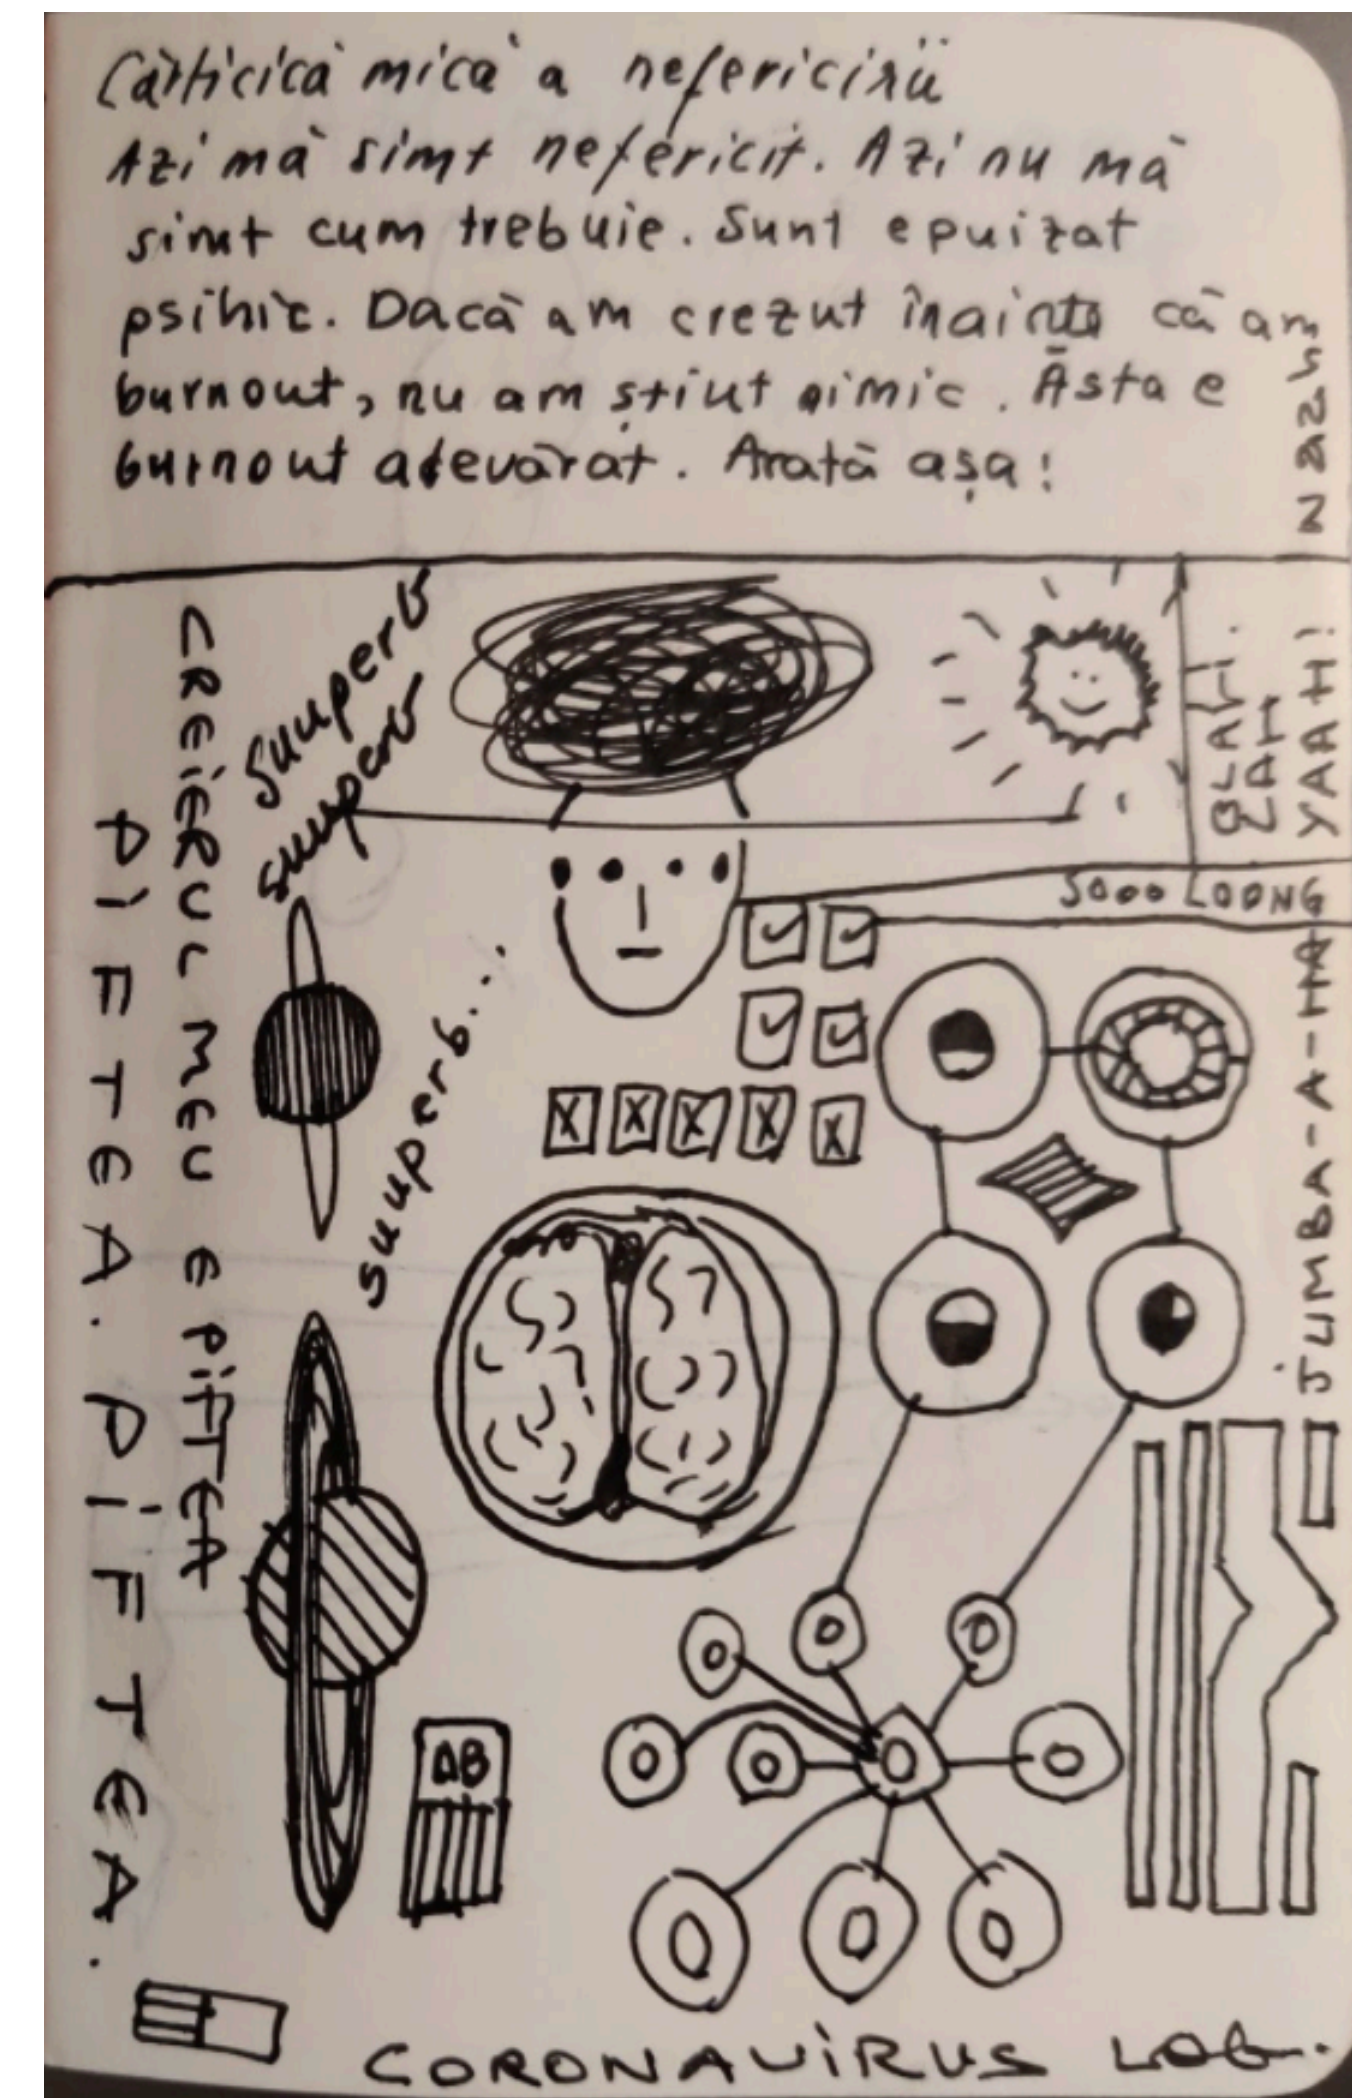 Cărticică mică a nefericirii
Azi mă simt nefericit. Azi nu mă
simt cum trebuie. Sunt epuizat
psihic. Dacă am crezut înainte că am
burnout, nu am știut nimic. Ăsta e
burnout adevărat. Arată așa:
CREiERUL MEU E PiFTEA
PiFTEA. PiFTEA.
Suuperb
suuperb
suuperb...
YAAH!
SOOO LOONG
JUMBA-A-HA
AB
CORONAViRUS